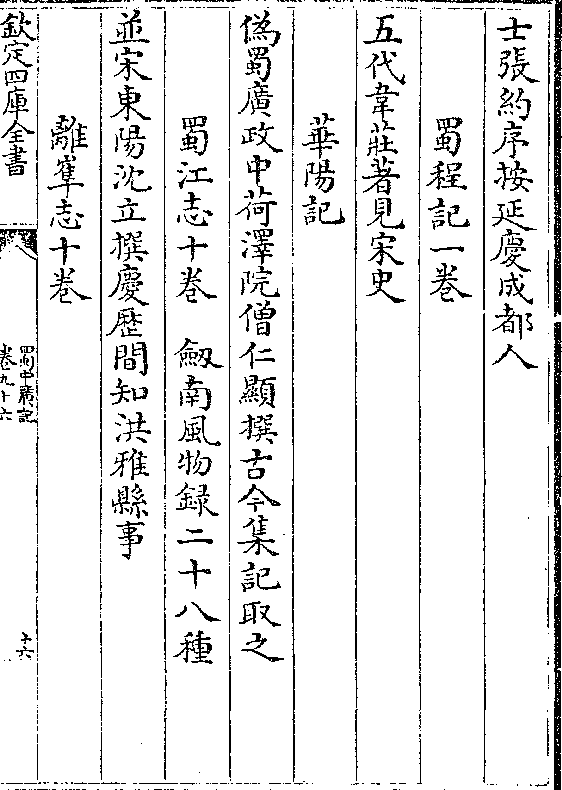 士張約序按延慶成都人
蜀程記一卷
五代韋莊著見宋史
華陽記
偽蜀廣政中荷澤院僧仁顯撰古今集記取之
蜀江志十卷　劔南風物録二十八種
並宋東陽沈立撰慶歴間知洪雅縣事
離𡐛志十卷
欽定四庫全書
蜀中廣記
卷九十六
十六